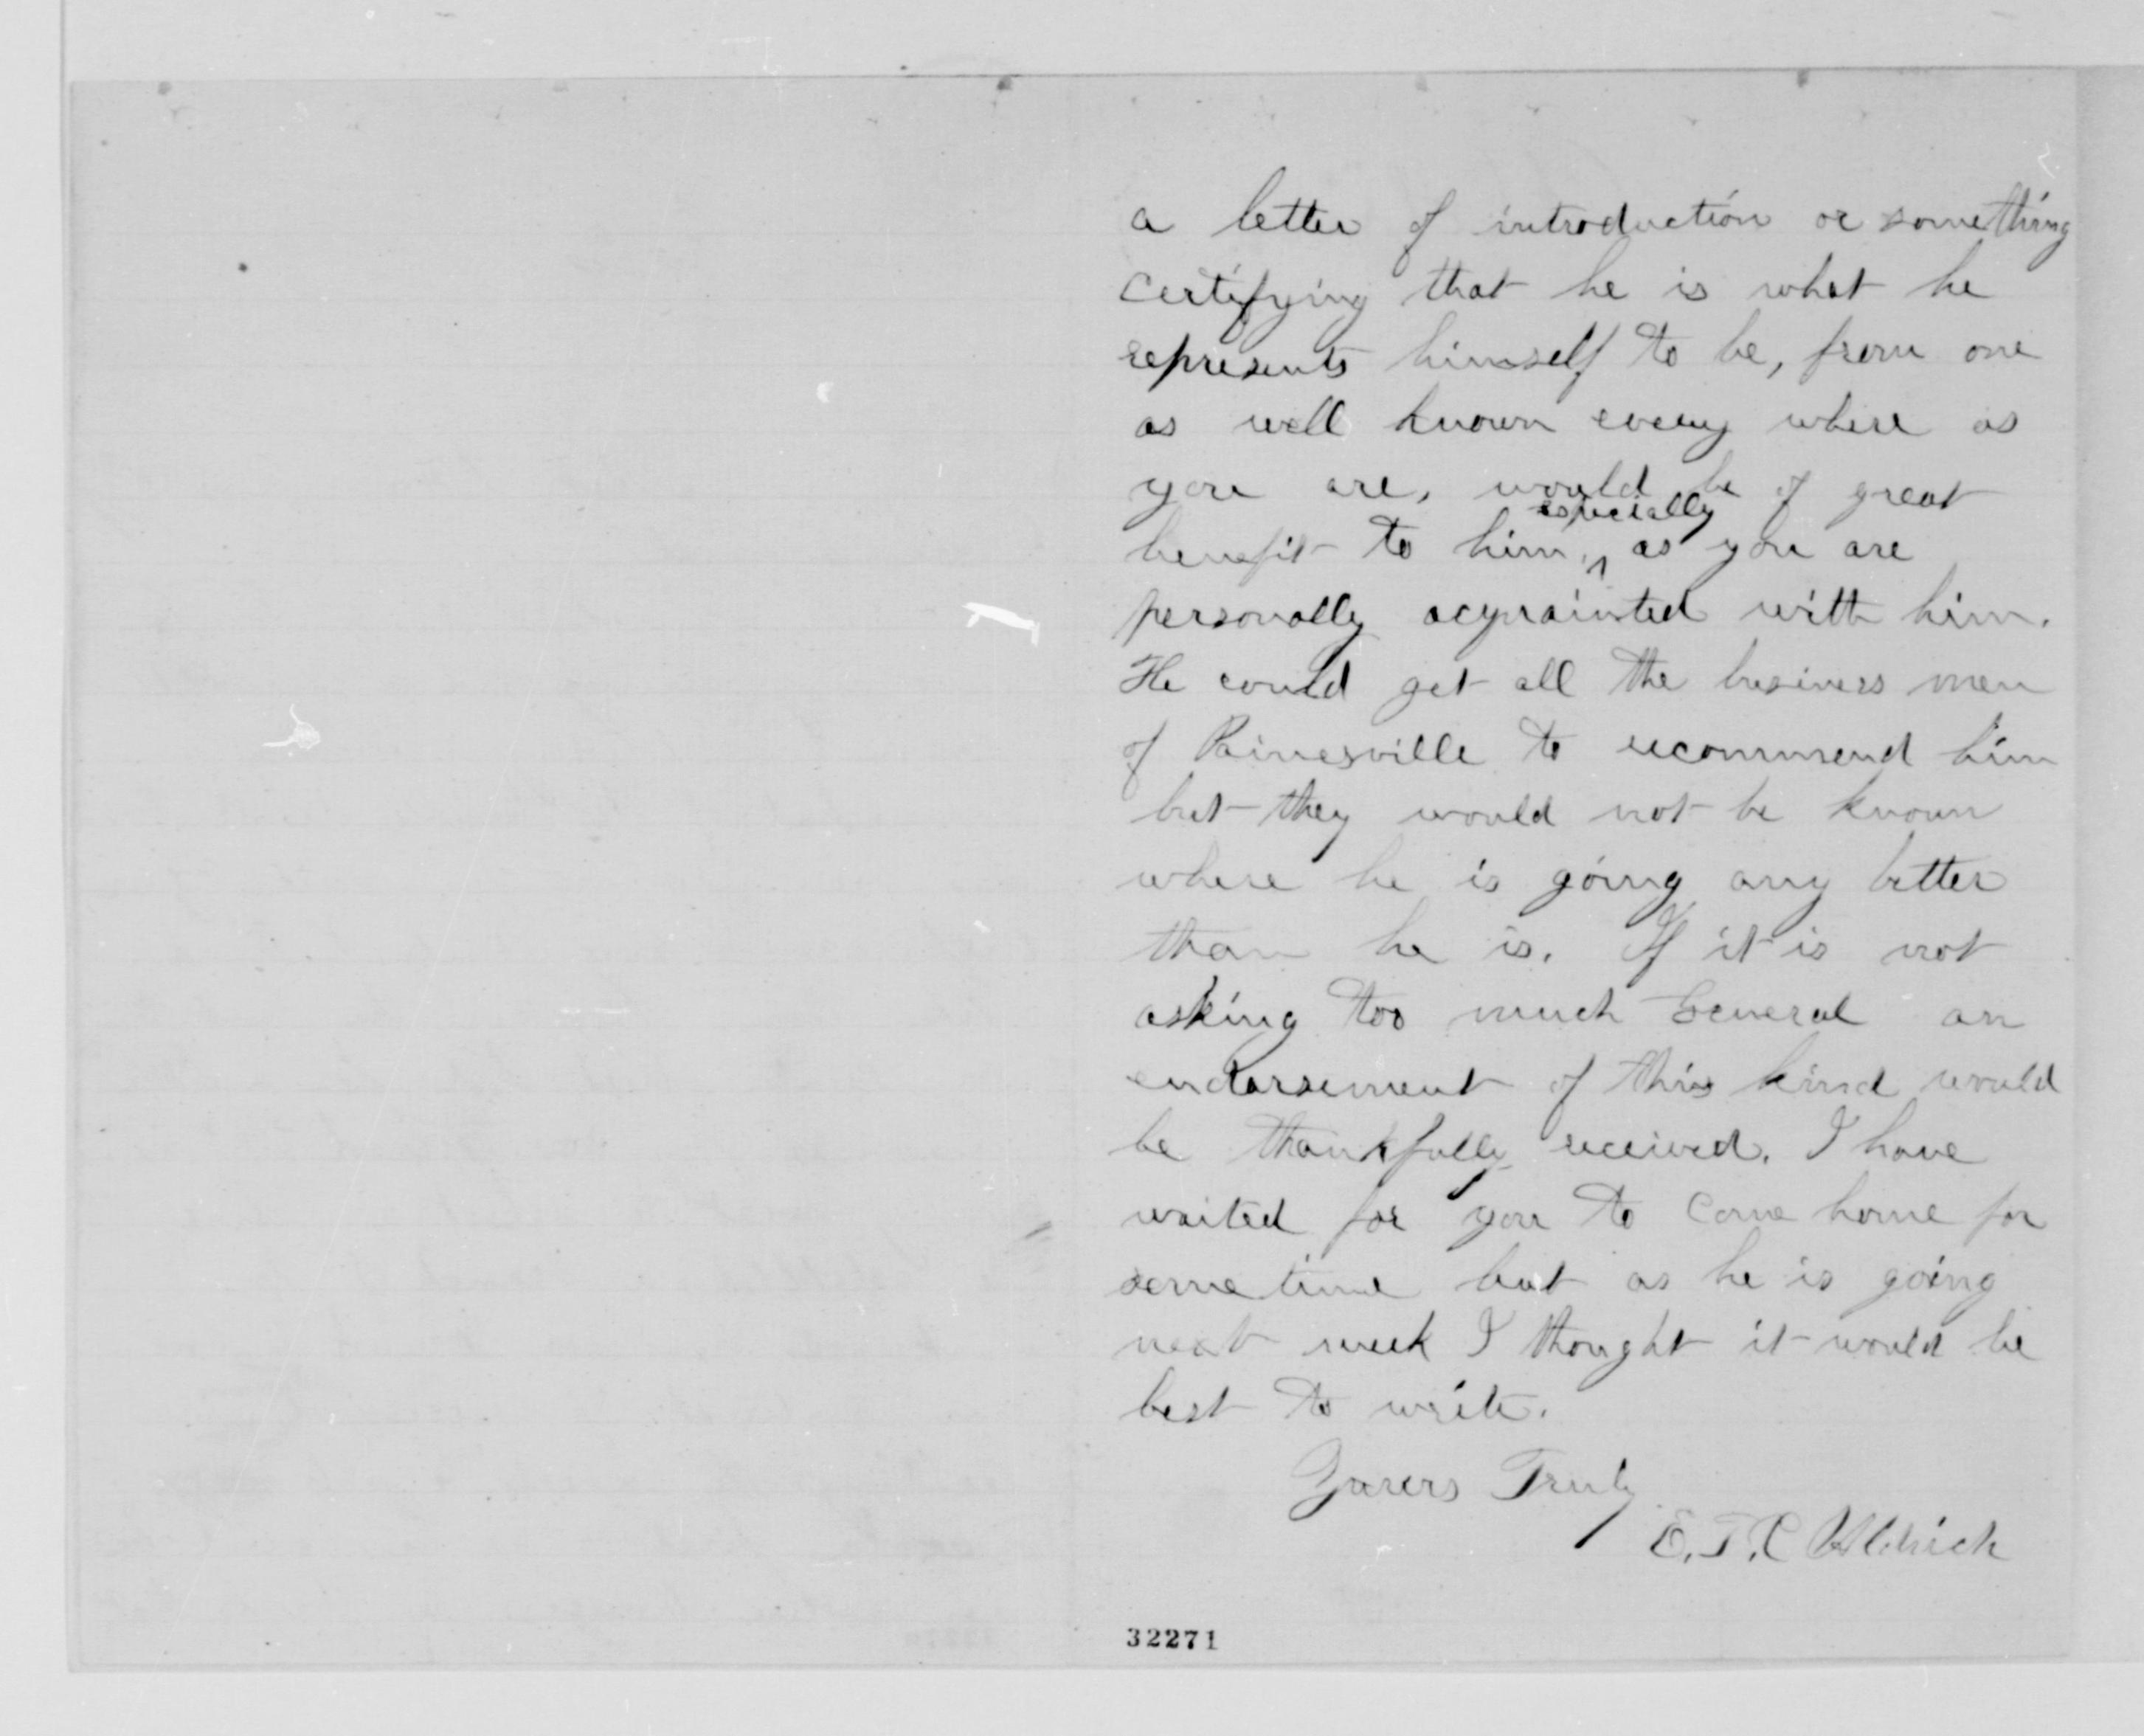 a letter of introduction or something
certifying that he is what he
represents himself to be, from one
as well known every where as
you are, would be of great
especially
benefit to him, ^ as you are
personally acquainted with him.
He could get all the business men
of Painesville to recommend him
but they would not be known
where he is going any better
than he is. If it is not
asking too much General an
endorsement of this kind would
be thankfully received. I have
waited for you to come home for
sometime but as he is going
next week I thought it would be
best to write.
Yours Truly
E. T. C Aldrich
32271